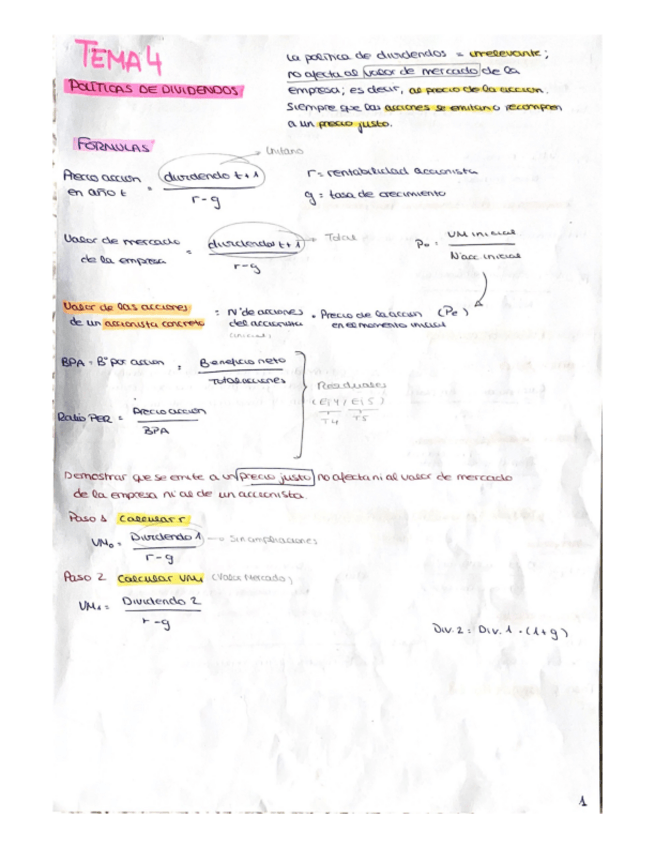 TEMA 4
POLÍTICAS DE DIVIDENDOS
La política de dividendos = irrelevante;
no afecta al valor de mercado de la
empresa; es decir, al precio de la acción.
Siempre que las acciones se emitan o recompren
a un precio justo.
FÓRMULAS
Unitario
Precio acción en año t = dividendo t+1 / r-g
r = rentabilidad accionista
g = tasa de crecimiento
Valor de mercado de la empresa = dividendos t+1 / r-g
Total
Po = VM inicial / Nº acc inicial
Valor de las acciones de un accionista concreto = Nº de acciones del accionista (inicial) · Precio de la acción en el momento inicial (Po)
BPA = Bº por acción = Beneficio neto / Total acciones
Ratio PER = Precio acción / BPA
(EJ4/EJ5)
T4 T5
Demostrar que se emite a un precio justo no afecta ni al valor de mercado
de la empresa ni al de un accionista.
Paso 1 Calcular r
VMo = Dividendo 1 / r-g
Sin ampliaciones
Paso 2 Calcular VM1 (Valor Mercado)
VM1 = Dividendo 2 / r-g
Div. 2 = Div. 1 · (1+g)
1